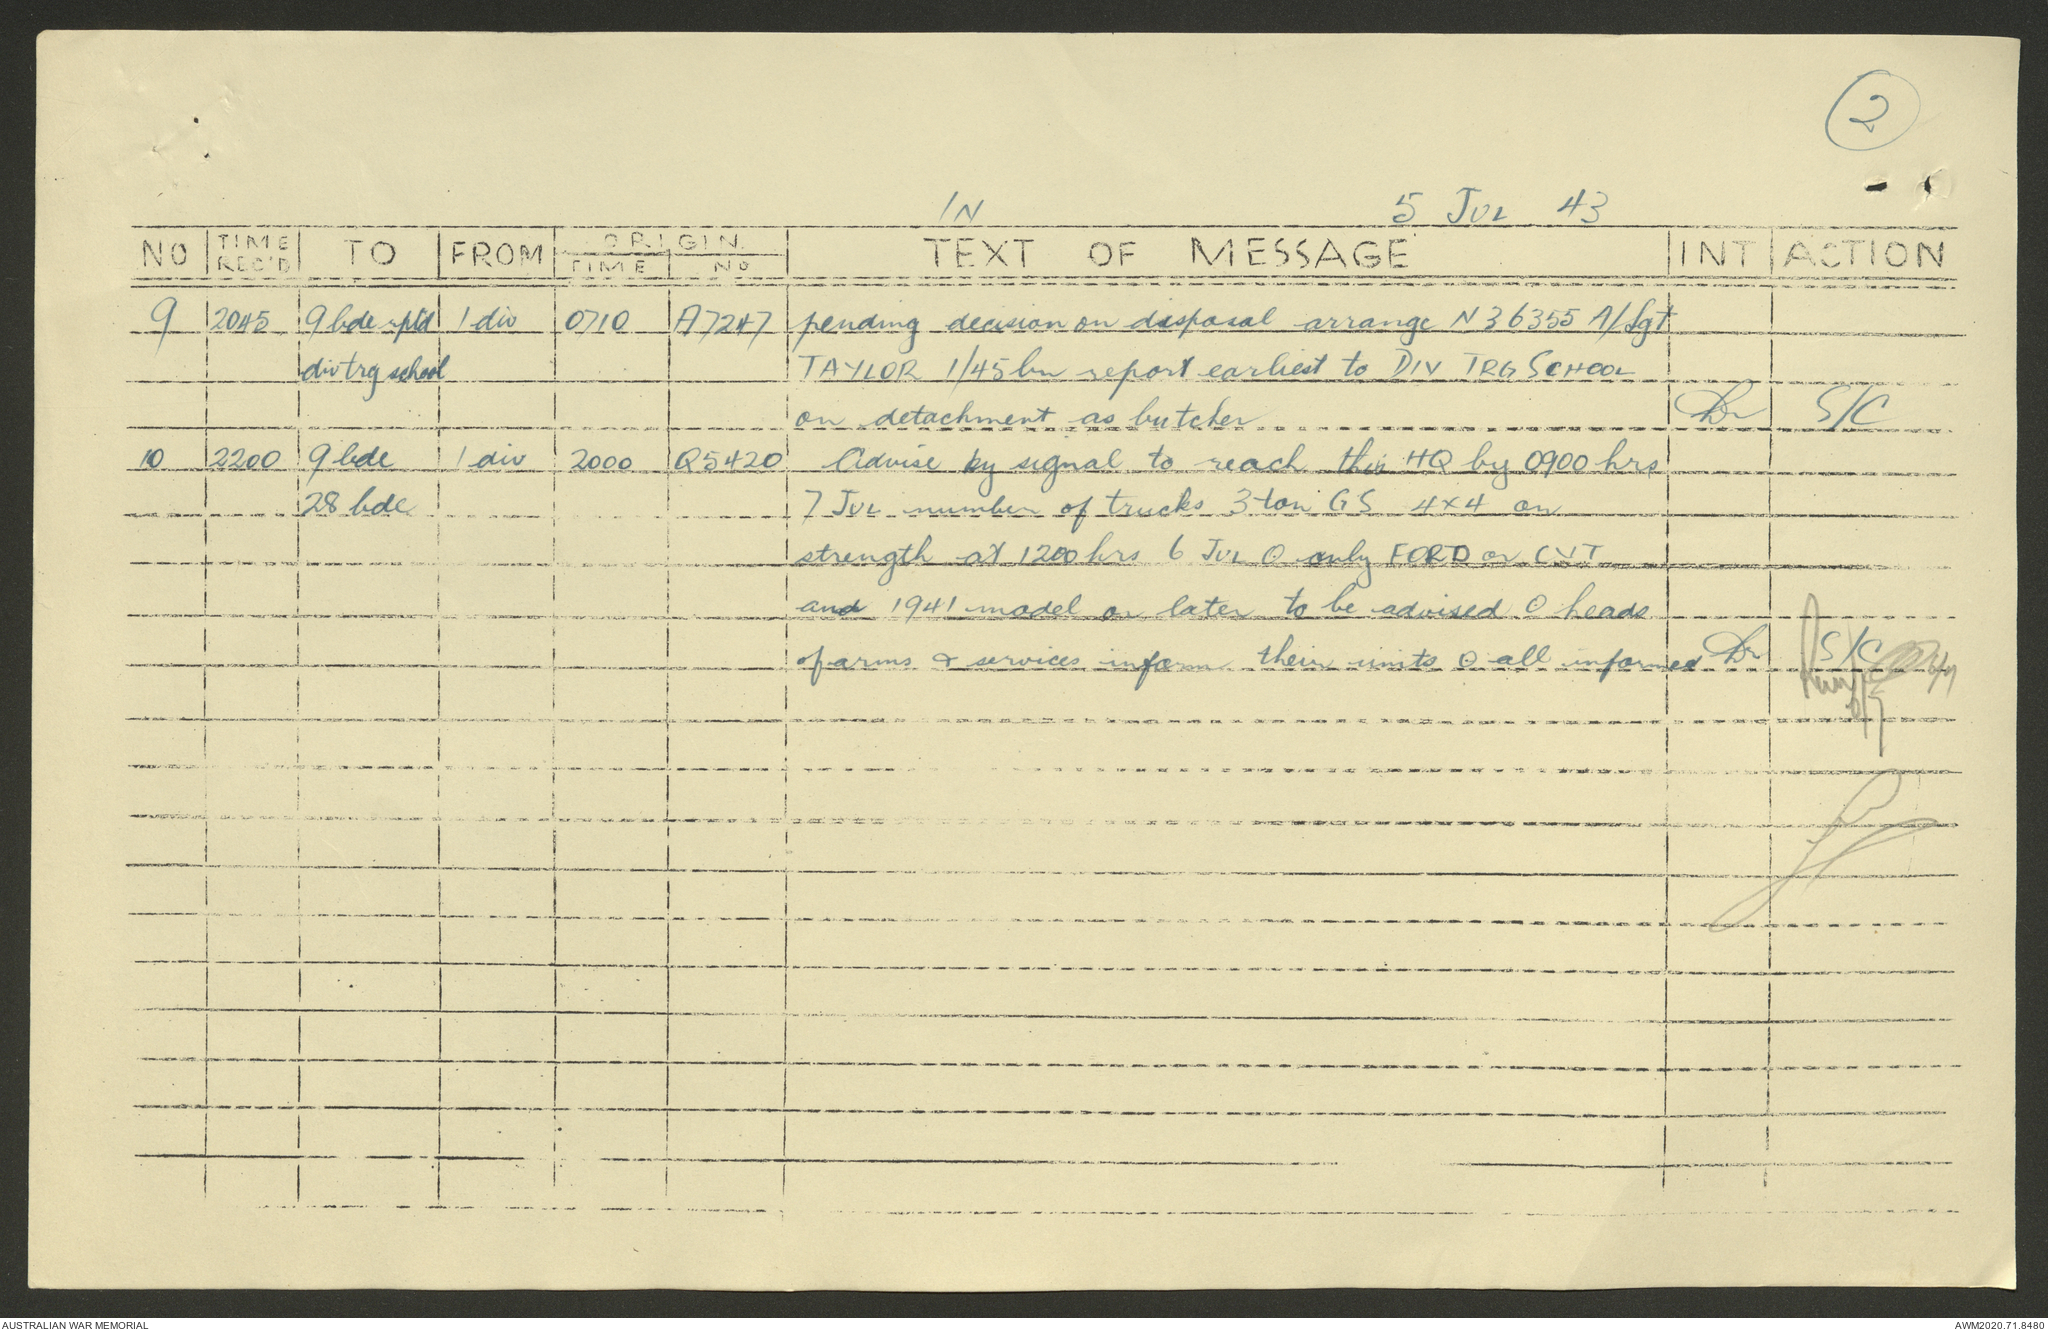 2
IN 5 JUL 43
NO TIME REC'D TO FROM ORIGIN TIME NO TEXT OF MESSAGE INT ACTION
9 2045 9 bde rptd 1 div 0710 A7247 pending decision on disposal arrange N36355 A/Sgt
div trg school TAYLOR 1/45 bn report earliest to DIV TRG SCHOOL
on detachment as butcher S/C
10 2200 9 bde 1 div 2000 Q5420 Advise by signal to reach this HQ by 0900 hrs
28 bde 7 JUL number of trucks 3 ton GS 4x4 on
strength at 1200 hrs 6 JUL O only FORD or CVT
and 1941 model or later to be advised O heads
of arms & services inform their units O all informed S/C
6/7
AUSTRALIAN WAR MEMORIAL AWM2020.71.8480